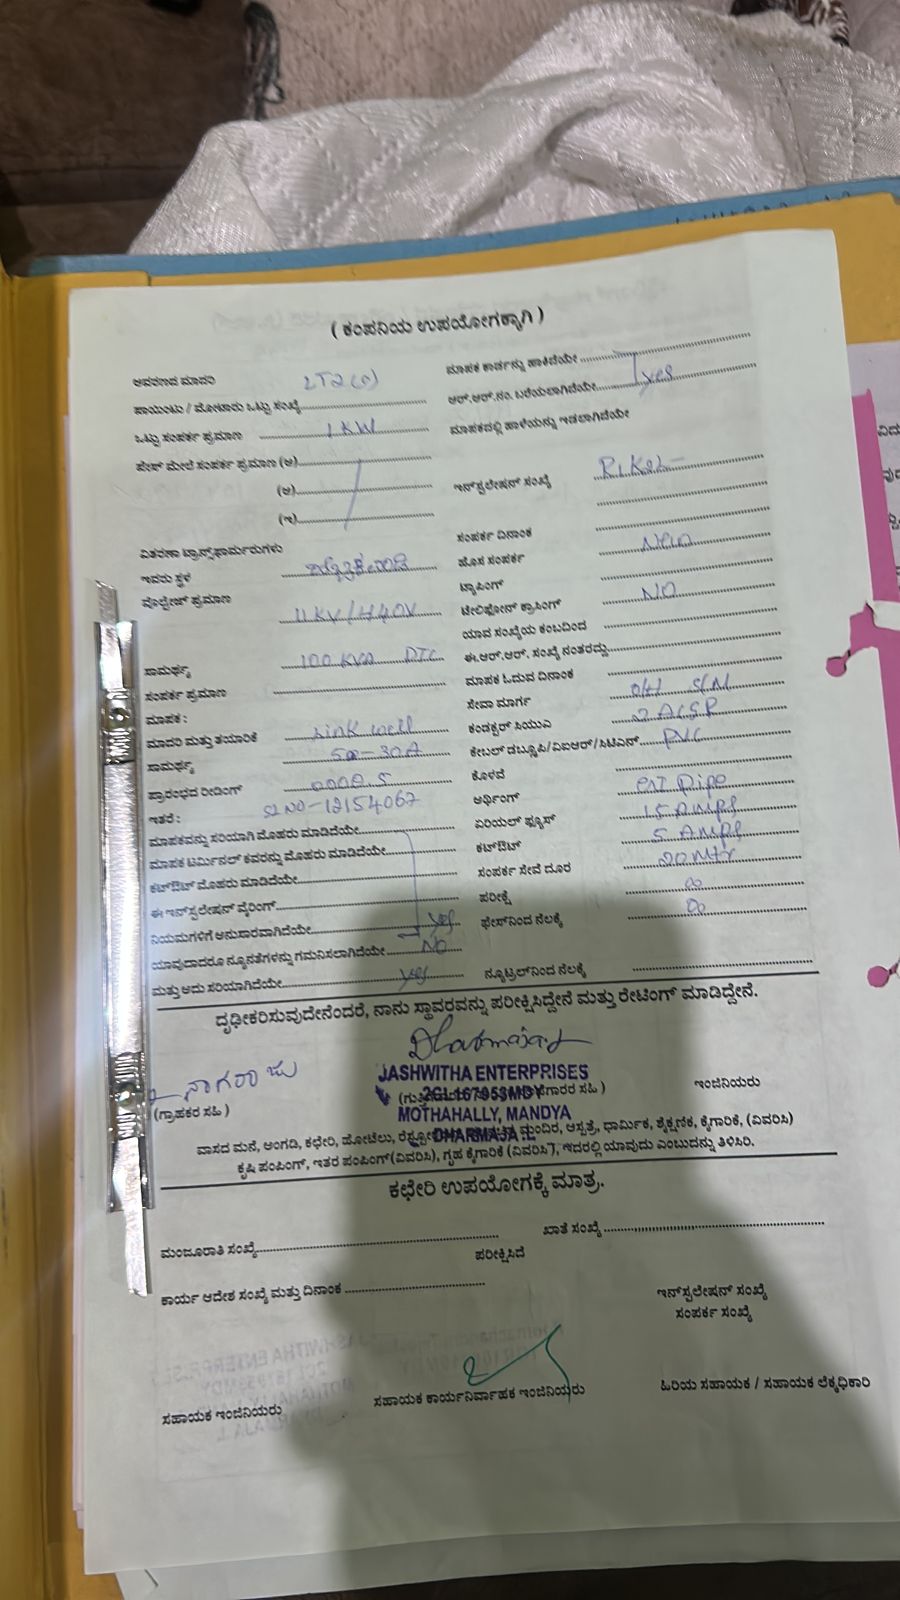 ( ಕಂಪನಿಯ ಉಪಯೋಗಕ್ಕಾಗಿ )
ಆವರಣದ ಮಾದರಿ
ಪಾಯಿಂಟು / ಮೋಟಾರು ಒಟ್ಟು ಸಂಖ್ಯೆ
ಒಟ್ಟು ಸಂಪರ್ಕ ಪ್ರಮಾಣ 1 KW
ಫೇಸ್ ಮೇಲೆ ಸಂಪರ್ಕ ಪ್ರಮಾಣ (ಅ)
(ಆ)
(ಇ)
ವಿತರಣಾ ಟ್ರಾನ್ಸ್‌ಫಾರ್ಮರುಗಳು
ಇವರು ಸ್ಥಳ
ವೋಲ್ಟೇಜ್ ಪ್ರಮಾಣ 11 KV/440V
ಸಾಮರ್ಥ್ಯ 100 KVA DTC
ಸಂಪರ್ಕ ಪ್ರಮಾಣ
ಮಾಪಕ :
ಮಾದರಿ ಮತ್ತು ತಯಾರಿಕೆ Link well
ಸಾಮರ್ಥ್ಯ 5a-30A
ಪ್ರಾರಂಭದ ರೀಡಿಂಗ್ 0000.5
ಇತರೆ : SL NO-12154067
ಮಾಪಕವನ್ನು ಸರಿಯಾಗಿ ಮೊಹರು ಮಾಡಿದೆಯೇ
ಮಾಪಕ ಟರ್ಮಿನಲ್ ಕವರನ್ನು ಮೊಹರು ಮಾಡಿದೆಯೇ
ಕಟ್‌ಔಟ್ ಮೊಹರು ಮಾಡಿದೆಯೇ
ಈ ಇನ್‌ಸ್ಟಲೇಷನ್ ವೈರಿಂಗ್
ನಿಯಮಗಳಿಗೆ ಅನುಸಾರವಾಗಿದೆಯೇ yes
ಯಾವುದಾದರೂ ನ್ಯೂನತೆಗಳನ್ನು ಗಮನಿಸಲಾಗಿದೆಯೇ NO
ಮತ್ತು ಅದು ಸರಿಯಾಗಿದೆಯೇ yes
ಮಾಪಕ ಕಾರ್ಡನ್ನು ಹಾಕಿದೆಯೇ
ಆರ್.ಆರ್.ನಂ. ಬರೆಯಲಾಗಿದೆಯೇ yes
ಮಾಪಕದಲ್ಲಿ ಹಾಳೆಯನ್ನು ಇಡಲಾಗಿದೆಯೇ
ಇನ್‌ಸ್ಟಲೇಷನ್ ಸಂಖ್ಯೆ
ಸಂಪರ್ಕ ದಿನಾಂಕ
ಹೊಸ ಸಂಪರ್ಕ New
ಟ್ಯಾಪಿಂಗ್
ಟೆಲಿಫೋನ್ ಕ್ರಾಸಿಂಗ್ NO
ಯಾವ ಸಂಖ್ಯೆಯ ಕಂಬದಿಂದ
ಈ.ಆರ್.ಆರ್. ಸಂಖ್ಯೆ ನಂತರದ್ದು
ಮಾಪಕ ಓದುವ ದಿನಾಂಕ
ಸೇವಾ ಮಾರ್ಗ OH S/M
ಕಂಡಕ್ಟರ್ ಸಿಯುವಿ 2 ACSR
ಕೇಬಲ್ ಡಬ್ಲ್ಯೂಪಿ/ವಿಐಆರ್/ಸಿಟಿಎಸ್ PVC
ಕೊಳವೆ
ಅರ್ಥಿಂಗ್ GI Pipe
ಏರಿಯಲ್ ಫ್ಯೂಸ್ 15 Amps
ಕಟ್‌ಔಟ್ 5 Amps
ಸಂಪರ್ಕ ಸೇವೆ ದೂರ 20 Mtr
ಪರೀಕ್ಷೆ ∞
ಫೇಸ್‌ನಿಂದ ನೆಲಕ್ಕೆ ∞
ನ್ಯೂಟ್ರಲ್‌ನಿಂದ ನೆಲಕ್ಕೆ
ದೃಢೀಕರಿಸುವುದೇನೆಂದರೆ, ನಾನು ಸ್ಥಾವರವನ್ನು ಪರೀಕ್ಷಿಸಿದ್ದೇನೆ ಮತ್ತು ರೇಟಿಂಗ್ ಮಾಡಿದ್ದೇನೆ.
ನಾಗರಾಜು
Dharmaja
JASHWITHA ENTERPRISES
2CL167953MDY
MOTHAHALLY, MANDYA
DHARMAJA .L
(ಗ್ರಾಹಕರ ಸಹಿ)
ಇಂಜಿನಿಯರು
ವಾಸದ ಮನೆ, ಅಂಗಡಿ, ಕಛೇರಿ, ಹೋಟೆಲು, ಮಂದಿರ, ಆಸ್ಪತ್ರೆ, ಧಾರ್ಮಿಕ, ಶೈಕ್ಷಣಿಕ, ಕೈಗಾರಿಕೆ, (ವಿವರಿಸಿ)
ಕೃಷಿ ಪಂಪಿಂಗ್, ಇತರ ಪಂಪಿಂಗ್(ವಿವರಿಸಿ), ಗೃಹ ಕೈಗಾರಿಕೆ (ವಿವರಿಸಿ), ಇದರಲ್ಲಿ ಯಾವುದು ಎಂಬುದನ್ನು ತಿಳಿಸಿರಿ.
ಕಛೇರಿ ಉಪಯೋಗಕ್ಕೆ ಮಾತ್ರ.
ಮಂಜೂರಾತಿ ಸಂಖ್ಯೆ
ಖಾತೆ ಸಂಖ್ಯೆ
ಪರೀಕ್ಷಿಸಿದೆ
ಕಾರ್ಯ ಆದೇಶ ಸಂಖ್ಯೆ ಮತ್ತು ದಿನಾಂಕ
ಇನ್‌ಸ್ಟಲೇಷನ್ ಸಂಖ್ಯೆ
ಸಂಪರ್ಕ ಸಂಖ್ಯೆ
ಸಹಾಯಕ ಇಂಜಿನಿಯರು
ಸಹಾಯಕ ಕಾರ್ಯನಿರ್ವಾಹಕ ಇಂಜಿನಿಯರು
ಹಿರಿಯ ಸಹಾಯಕ / ಸಹಾಯಕ ಲೆಕ್ಕಧಿಕಾರಿ